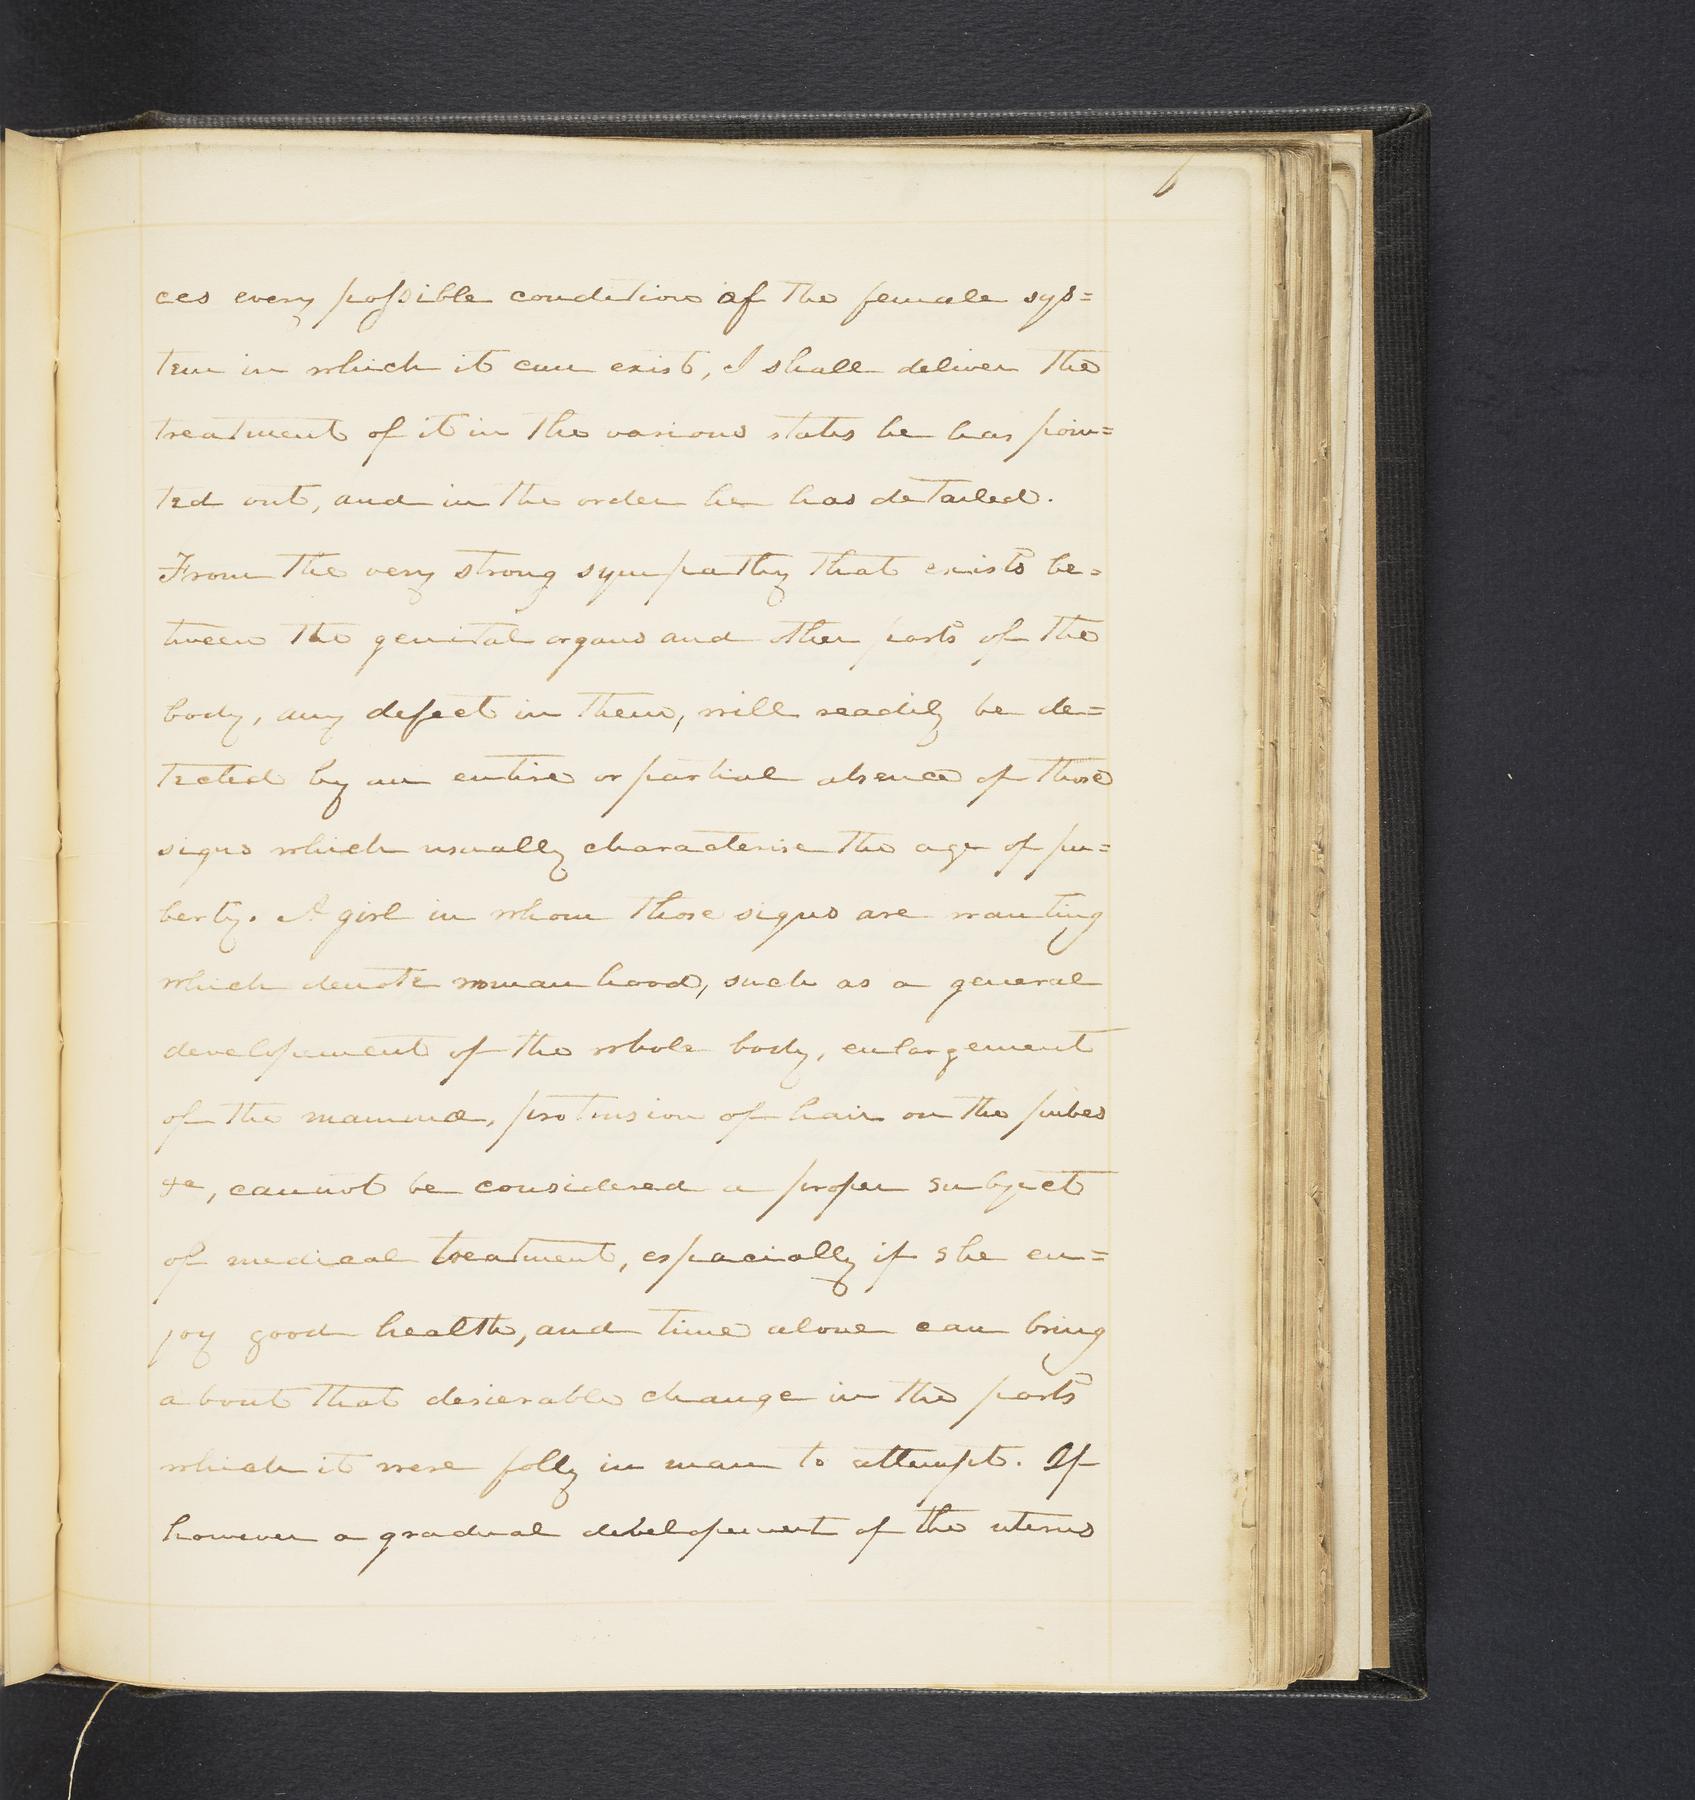 6
ces every possible condition of the female sys=
tem in which it can exist, I shall deliver the
treatment of it in the various states he has poin=
ted out, and in the order he has detailed.
From the very strong sympathy that exists be=
tween the genital organs and other parts of the
body, any defect in them, will readily be de=
tected by an entire or partial absence of those
signs which usually characterise the age of pu=
berty. A girl in whom those signs are wanting
which denote womanhood, such as a general
developement of the whole body, enlargement
of the mammæ, protrusion of hair on the pubes
&c, cannot be considered a proper subject
of medical treatment, espacially if she en=
joy good health, and time alone can bring
about that desierable change in the parts
which it were folly in man to attempt. If
however a gradual developement of the uterus